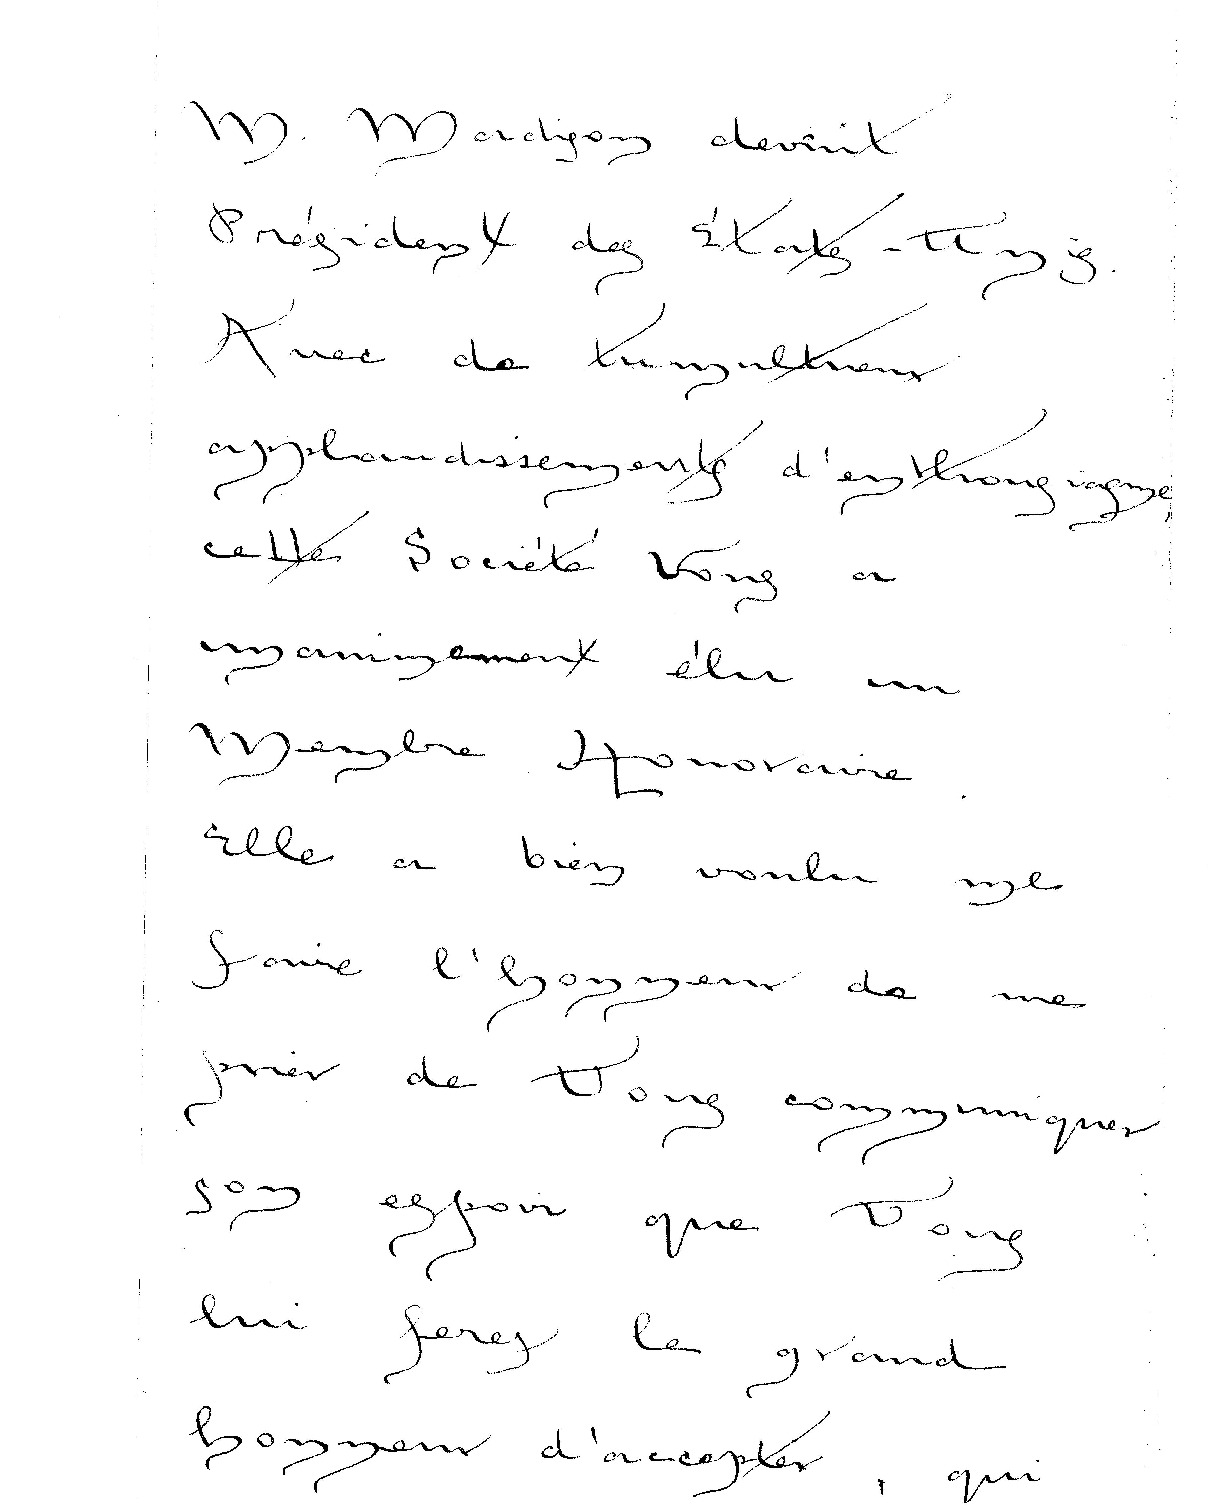 M. Madison devint
Président des États-Unis.
Avec de tumultueux
applaudissements d'enthousiasme,
cette Société Vous a
unanimement élu un
Membre Honoraire.
Elle a bien voulu me
faire l'honneur de me
prier de Vous communiquer
son espoir que Vous
lui ferez le grand
honneur d'accepter, qui